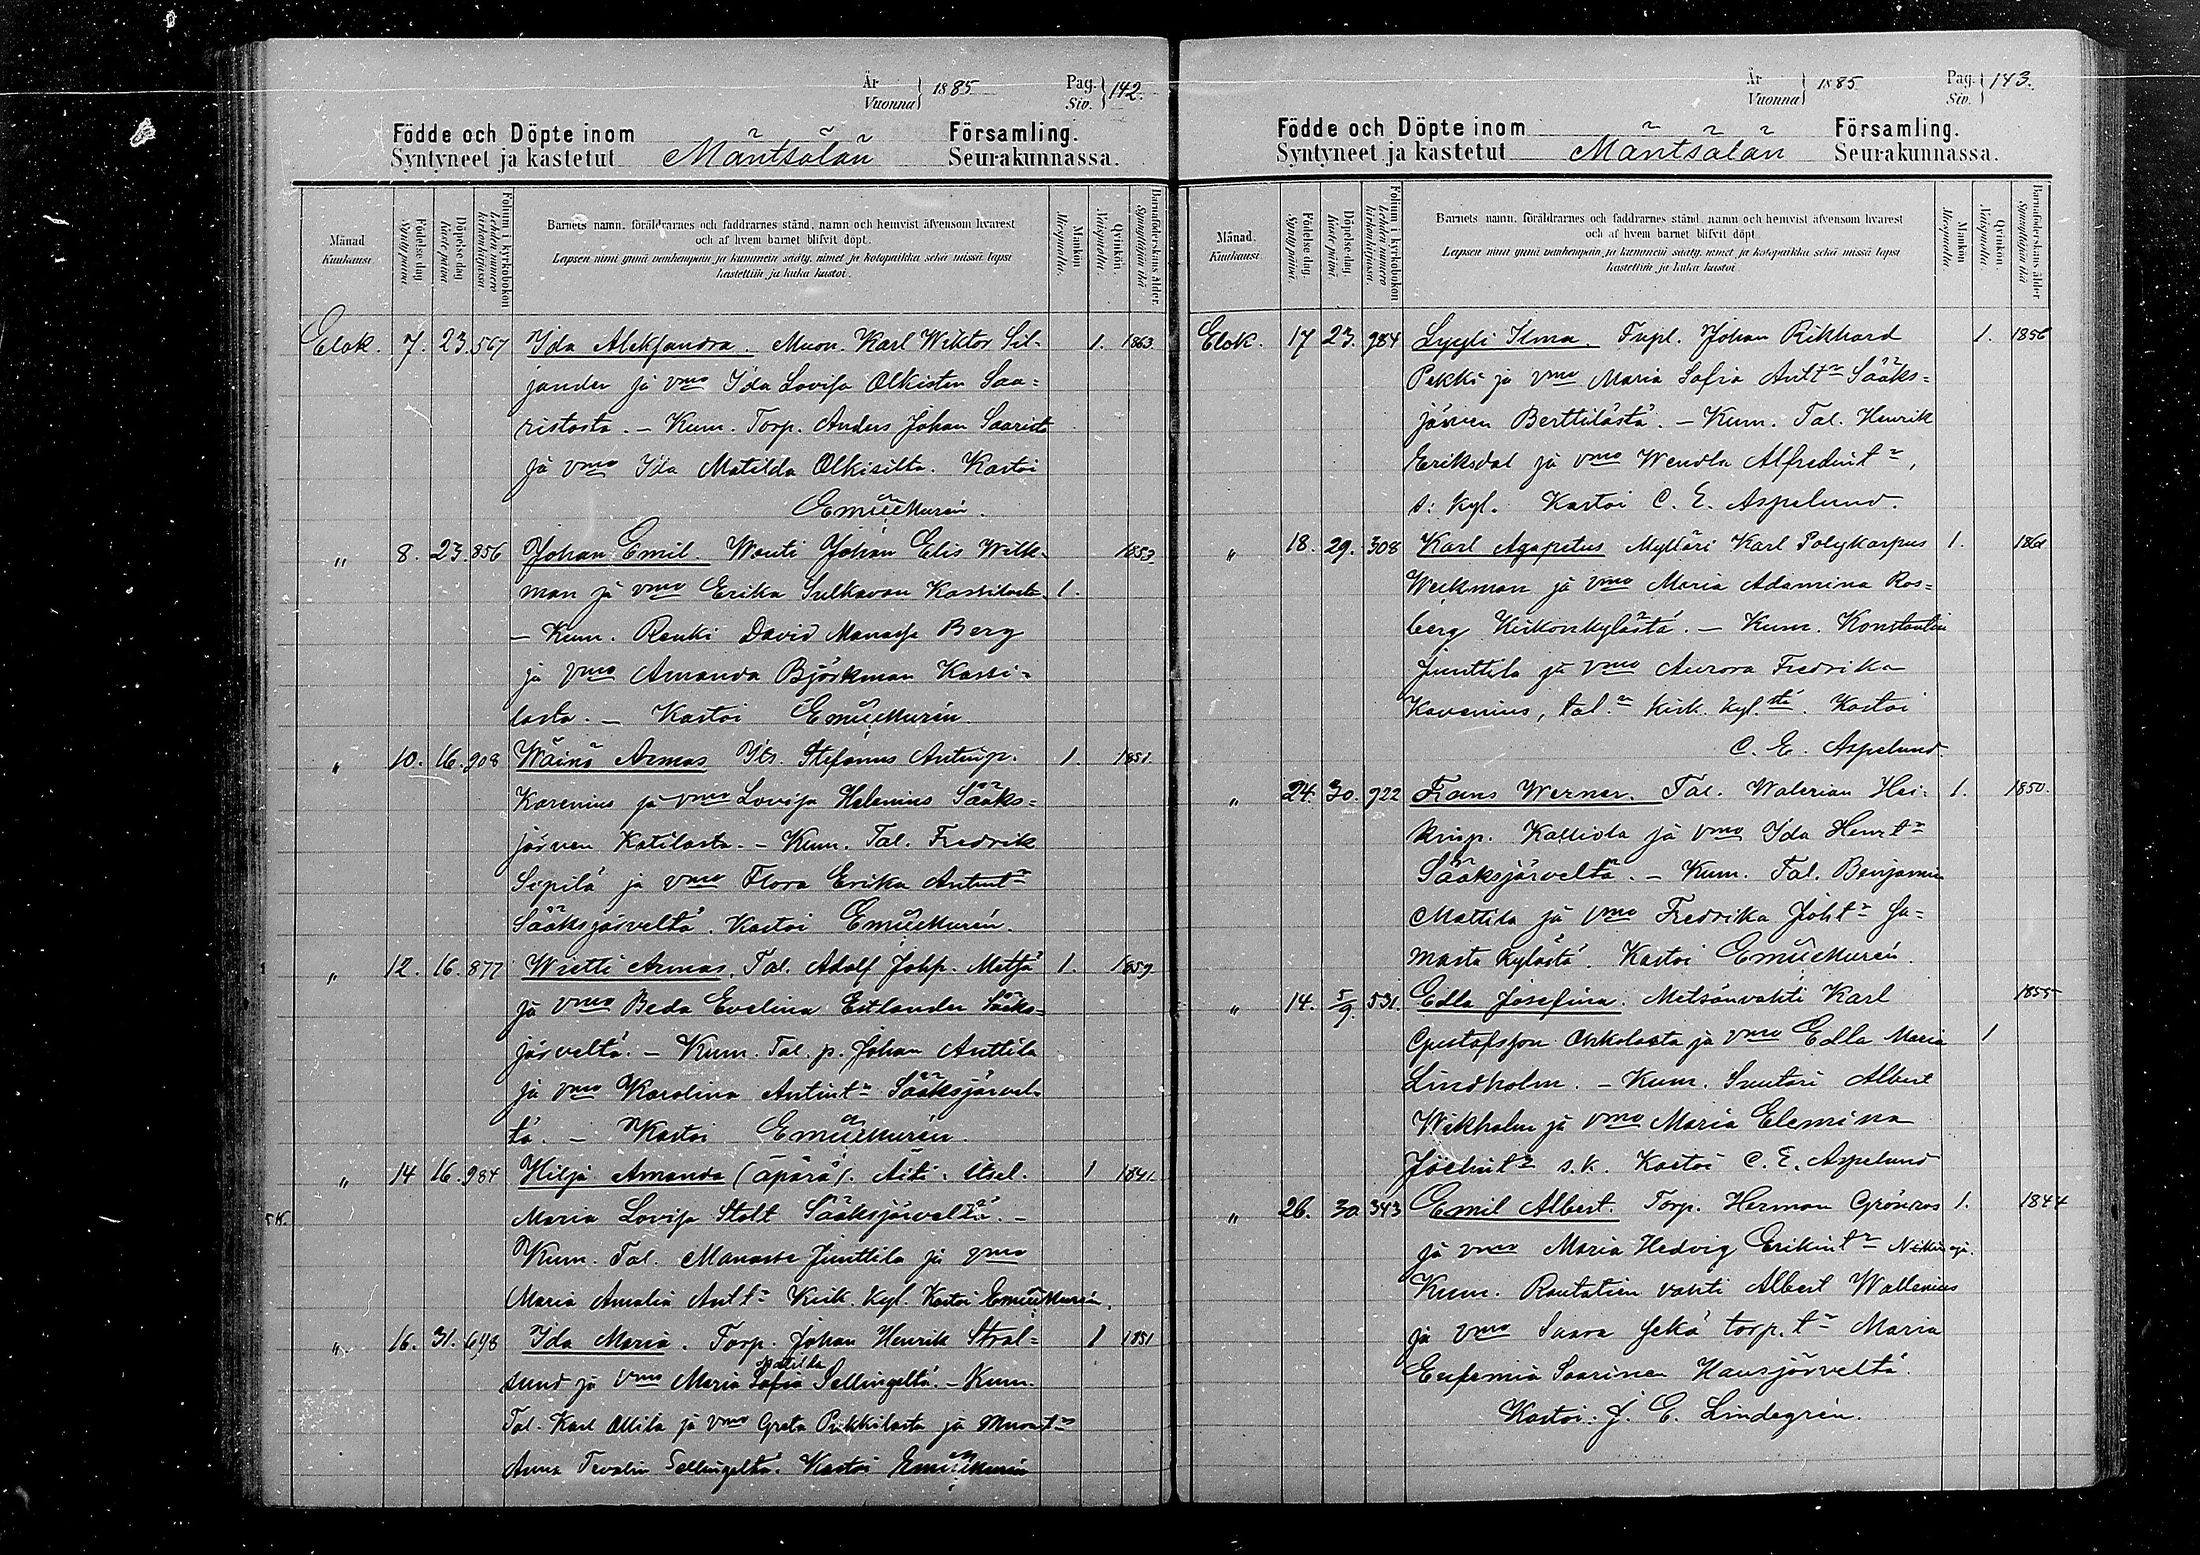 År
Vuonna } 1885 Pag.
Siv. } 142.
Födde och Döpte inom Församling.
Syntyneet ja kastetut Mäntsälän Seurakunnassa.
Månad
Kuukausi
Födelse-dag
Syntypäivä
Döpelse-dag
Kastepäivä
Folium i kyrkoboken
Lehden numero kirkonkirjassa
Barnets namn, föräldrarnes och faddrarnes stånd, namn och hemvist äfvensom hvarest
och af hvem barnet blifvit döpt.
Lapsen nimi ynnä vanhempain ja kummein sääty, nimet ja kotopaikka sekä missä lapsi
kastettiin ja kuka kastoi.
Mankön
Miespuolia
Qvinkön
Naispuolia
Barnaföderskans ålder.
Synnyttäjän ikä
Elok. 7. 23. 567 Ida Aleksandra. Muon. Karl Wiktor Sil- 1. 1863
jander ja vmo Ida Lovisa Olkisten Saa-
ristosta. - Kum. Torp. Anders Johan Saaristo
ja vmo Ida Matilda Olkisilta. Kastoi
Emil Murén.
" 8. 23. 856 Johan Emil. Wouti Johan Elis Wilk- 1853
man ja vmo Erika Sulkavan Kassilasta. 1.
- Kum. Renki David Manasse Berg
ja vmo Amanda Björkman Kassi-
lasta. - Kastoi Emil Murén.
" 10. 16. 908 Wäinö Armas Its. Stefanus Antinp. 1. 1851.
Karenius ja vmo Lovisa Helenius Sääks-
järven Katilasta. - Kum. Tal. Fredrik
Sipilä ja vmo Flora Erika Antint.
Sääksjärveltä. Kastoi Emil Murén.
" 12. 16. 877 Wietti Armas. Tal. Adolf Johp. Metsä 1. 1859
ja vmo Beda Evelina Estlander Sääks-
järveltä. - Kum. Tal. p. Johan Anttila
ja vmo Karolina Antint. Sääksjärvel-
tä. - Kastoi Emil Murén.
" 14 16. 984 Hilja Amanda (äpärä). Äiti: Itsel. 1 1841.
Maria Lovisa Stolt Sääksjärveltä. -
Kum. Tal. Manasse Junttila ja vmo
Maria Amalia Antt. Kirk. kyl. Kastoi Emil Murén.
" 16. 31. 698 Ida Maria. Torp. Johan Henrik Stral- 1 1851
sund ja vmo Maria Sofia Sellingeltä. - Kum.
Tal. Karl Ollila ja vmo Greta Pukkilasta ja Muont.
Anna Tevalin Sellingeltä. Kastoi Emil Murén
År
Vuonna } 1885 Pag.
Siv. } 143.
Födde och Döpte inom Församling.
Syntyneet ja kastetut Mäntsälän Seurakunnassa.
Månad.
Kuukausi.
Födelse-dag
Syntypäivä.
Döpelse-dag
Kastepäivä
Folium i kyrkoboken
Lehden numero kirkonkirjassa.
Barnets namn, föräldrarnes och faddrarnes stånd, namn och hemvist äfvensom hvarest
och af hvem barnet blifvit döpt.
Lapsen nimi ynnä vanhempain ja kummein sääty, nimet ja kotopaikka sekä missä lapsi
kastettiin ja kuka kastoi.
Mankön
Miespuolia
Qvinkön
Naispuolia
Barnaföderskans ålder
Synnyttäjän ikä
Elok. 17 23. 984 Lyyli Ilma. Johan Rikhard 1. 1856
Pekki ja vmo Maria Sofia Antt. Sääks-
järven Berttilästä. - Kum. Tal. Henrik
Eriksdal ja vmo Wendla Alfredint.,
s: kyl. Kastoi C. E. Aspelund.
" 18. 29. 308 Karl Agapetus Mylläri Karl Polykarpus 1.
Weckman ja vmo Maria Adamina Ros-
berg Kirkonkylästä. - Kum. Konstantin
Junttila ja vmo Aurora Fredrika
Kavenius, tal. kirk. kyl.stä. Kastoi
C. E. Aspelund.
" 24. 30. 922 Frans Werner. Tal. Walerian Hei- 1. 1850.
kinp. Kalliola ja vmo Ida Henrt.
Sääksjärveltä. - Kum. Tal. Benjamin
Mattila ja vmo Fredrika Joht. sa-
masta kylästä. Kastoi Emil Murén.
" 14. 5/9. 531. Edla Josefina. Metsänvahti Karl 1855
Gustafsson Ohkolasta ja vmo Edla Maria 1
Lindholm. - Kum. Suutari Albert
Wikholm ja vmo Maria Elemina
s. k. Kastoi C. E. Aspelund
" 26. 30. 343 Emil Albert. Torp. Herman Grönroos 1. 1844
ja vmo Maria Hedvig Erikint.
Kum. Rautatien vahti Albert Wallenius
ja vmo Saara sekä torp. t. Maria
Eufemia Saarinen Hausjärveltä.
Kastoi: J. E. Lindegrén.